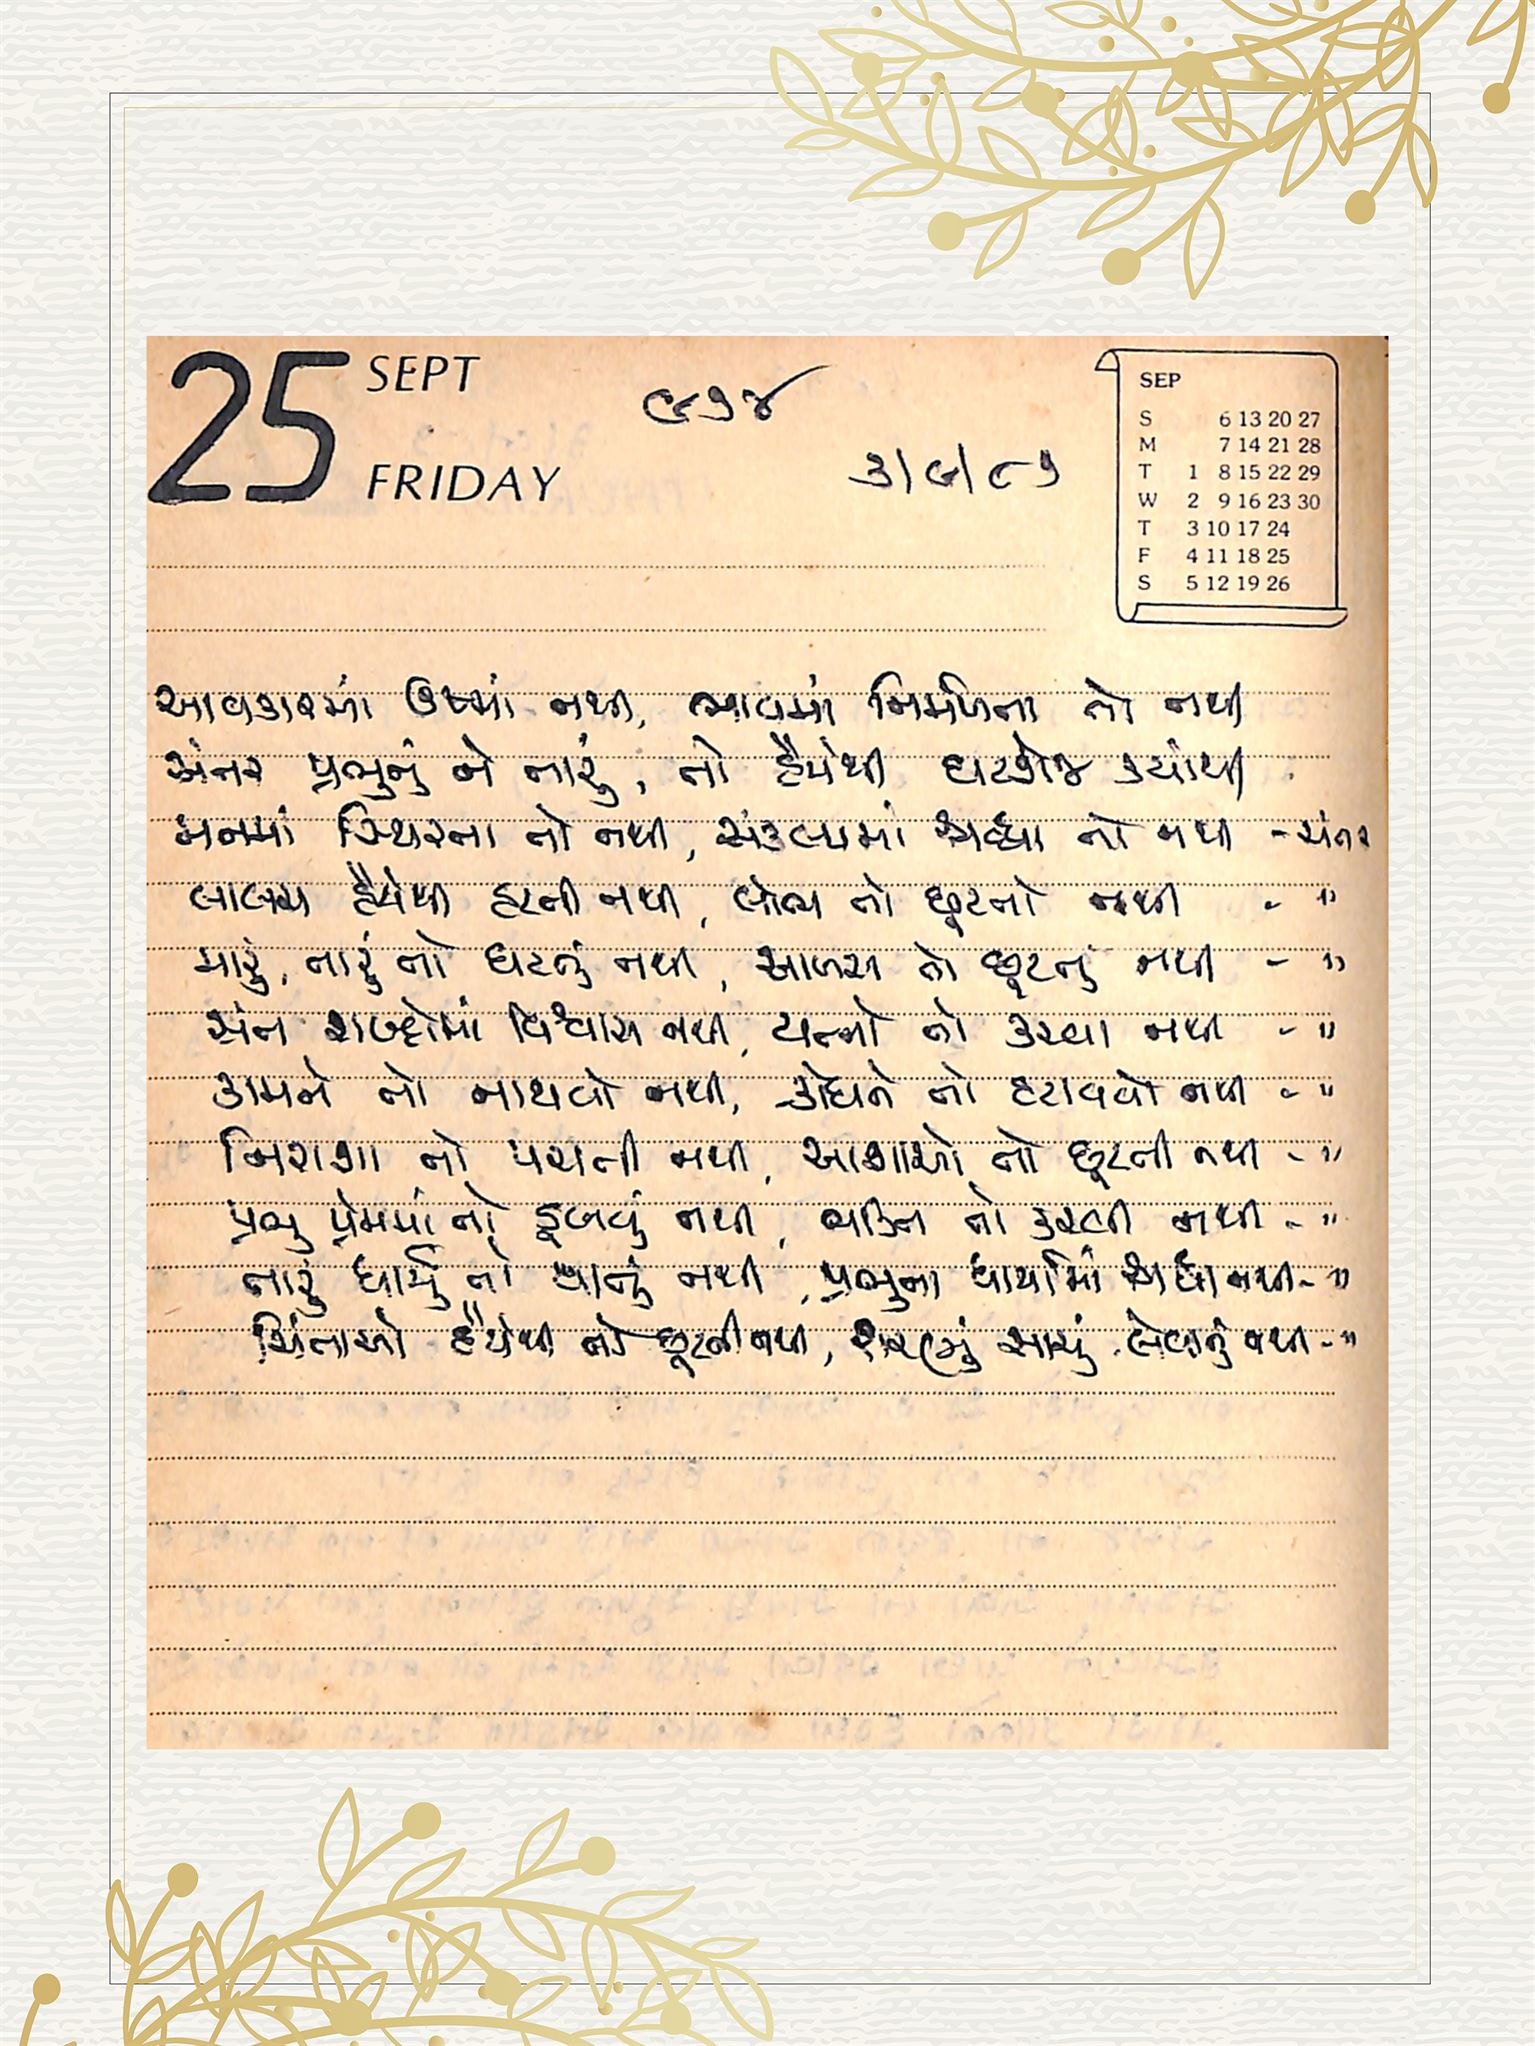 25 SEPT
FRIDAY
૯૭૪
૩/૯/૮૭
SEP
S 6 13 20 27
M 7 14 21 28
T 1 8 15 22 29
W 2 9 16 23 30
T 3 10 17 24
F 4 11 18 25
S 5 12 19 26
આવકારમાં ઉષ્માં નથી, ભાવમાં નિર્મળતા તો નથી
અંતર પ્રભુનું ને તારું, તો હૈયેથી ઘટશેજ ક્યાંથી
મનમાં સ્થિરતા તો નથી, સંકલ્પમાં શ્રધ્ધા તો નથી - અંતર
લાલચ હૈયેથી હટતી નથી, લોભ તો છૂટતો નથી - "
મારું, તારું તો ઘટતું નથી, આળસ તો છૂટતું નથી - "
સંત શબ્દોમાં વિશ્વાસ નથી, યત્નો તો કરવા નથી - "
કામને તો નાથવો નથી, ક્રોધને તો હટાવવો નથી - "
નિરાશા તો પચતી નથી, આશાઓ તો છૂટતી નથી - "
પ્રભુ પ્રેમમાં તો ડૂબવું નથી, ભક્તિ તો કરવી નથી - "
તારું ધાર્યું તો થાતું નથી, પ્રભુના ધાર્યામાં શ્રધા નથી - "
ચિંતાઓ હૈયેથી તો છૂટતી નથી, શરણું સાચું લેવાતું નથી - "